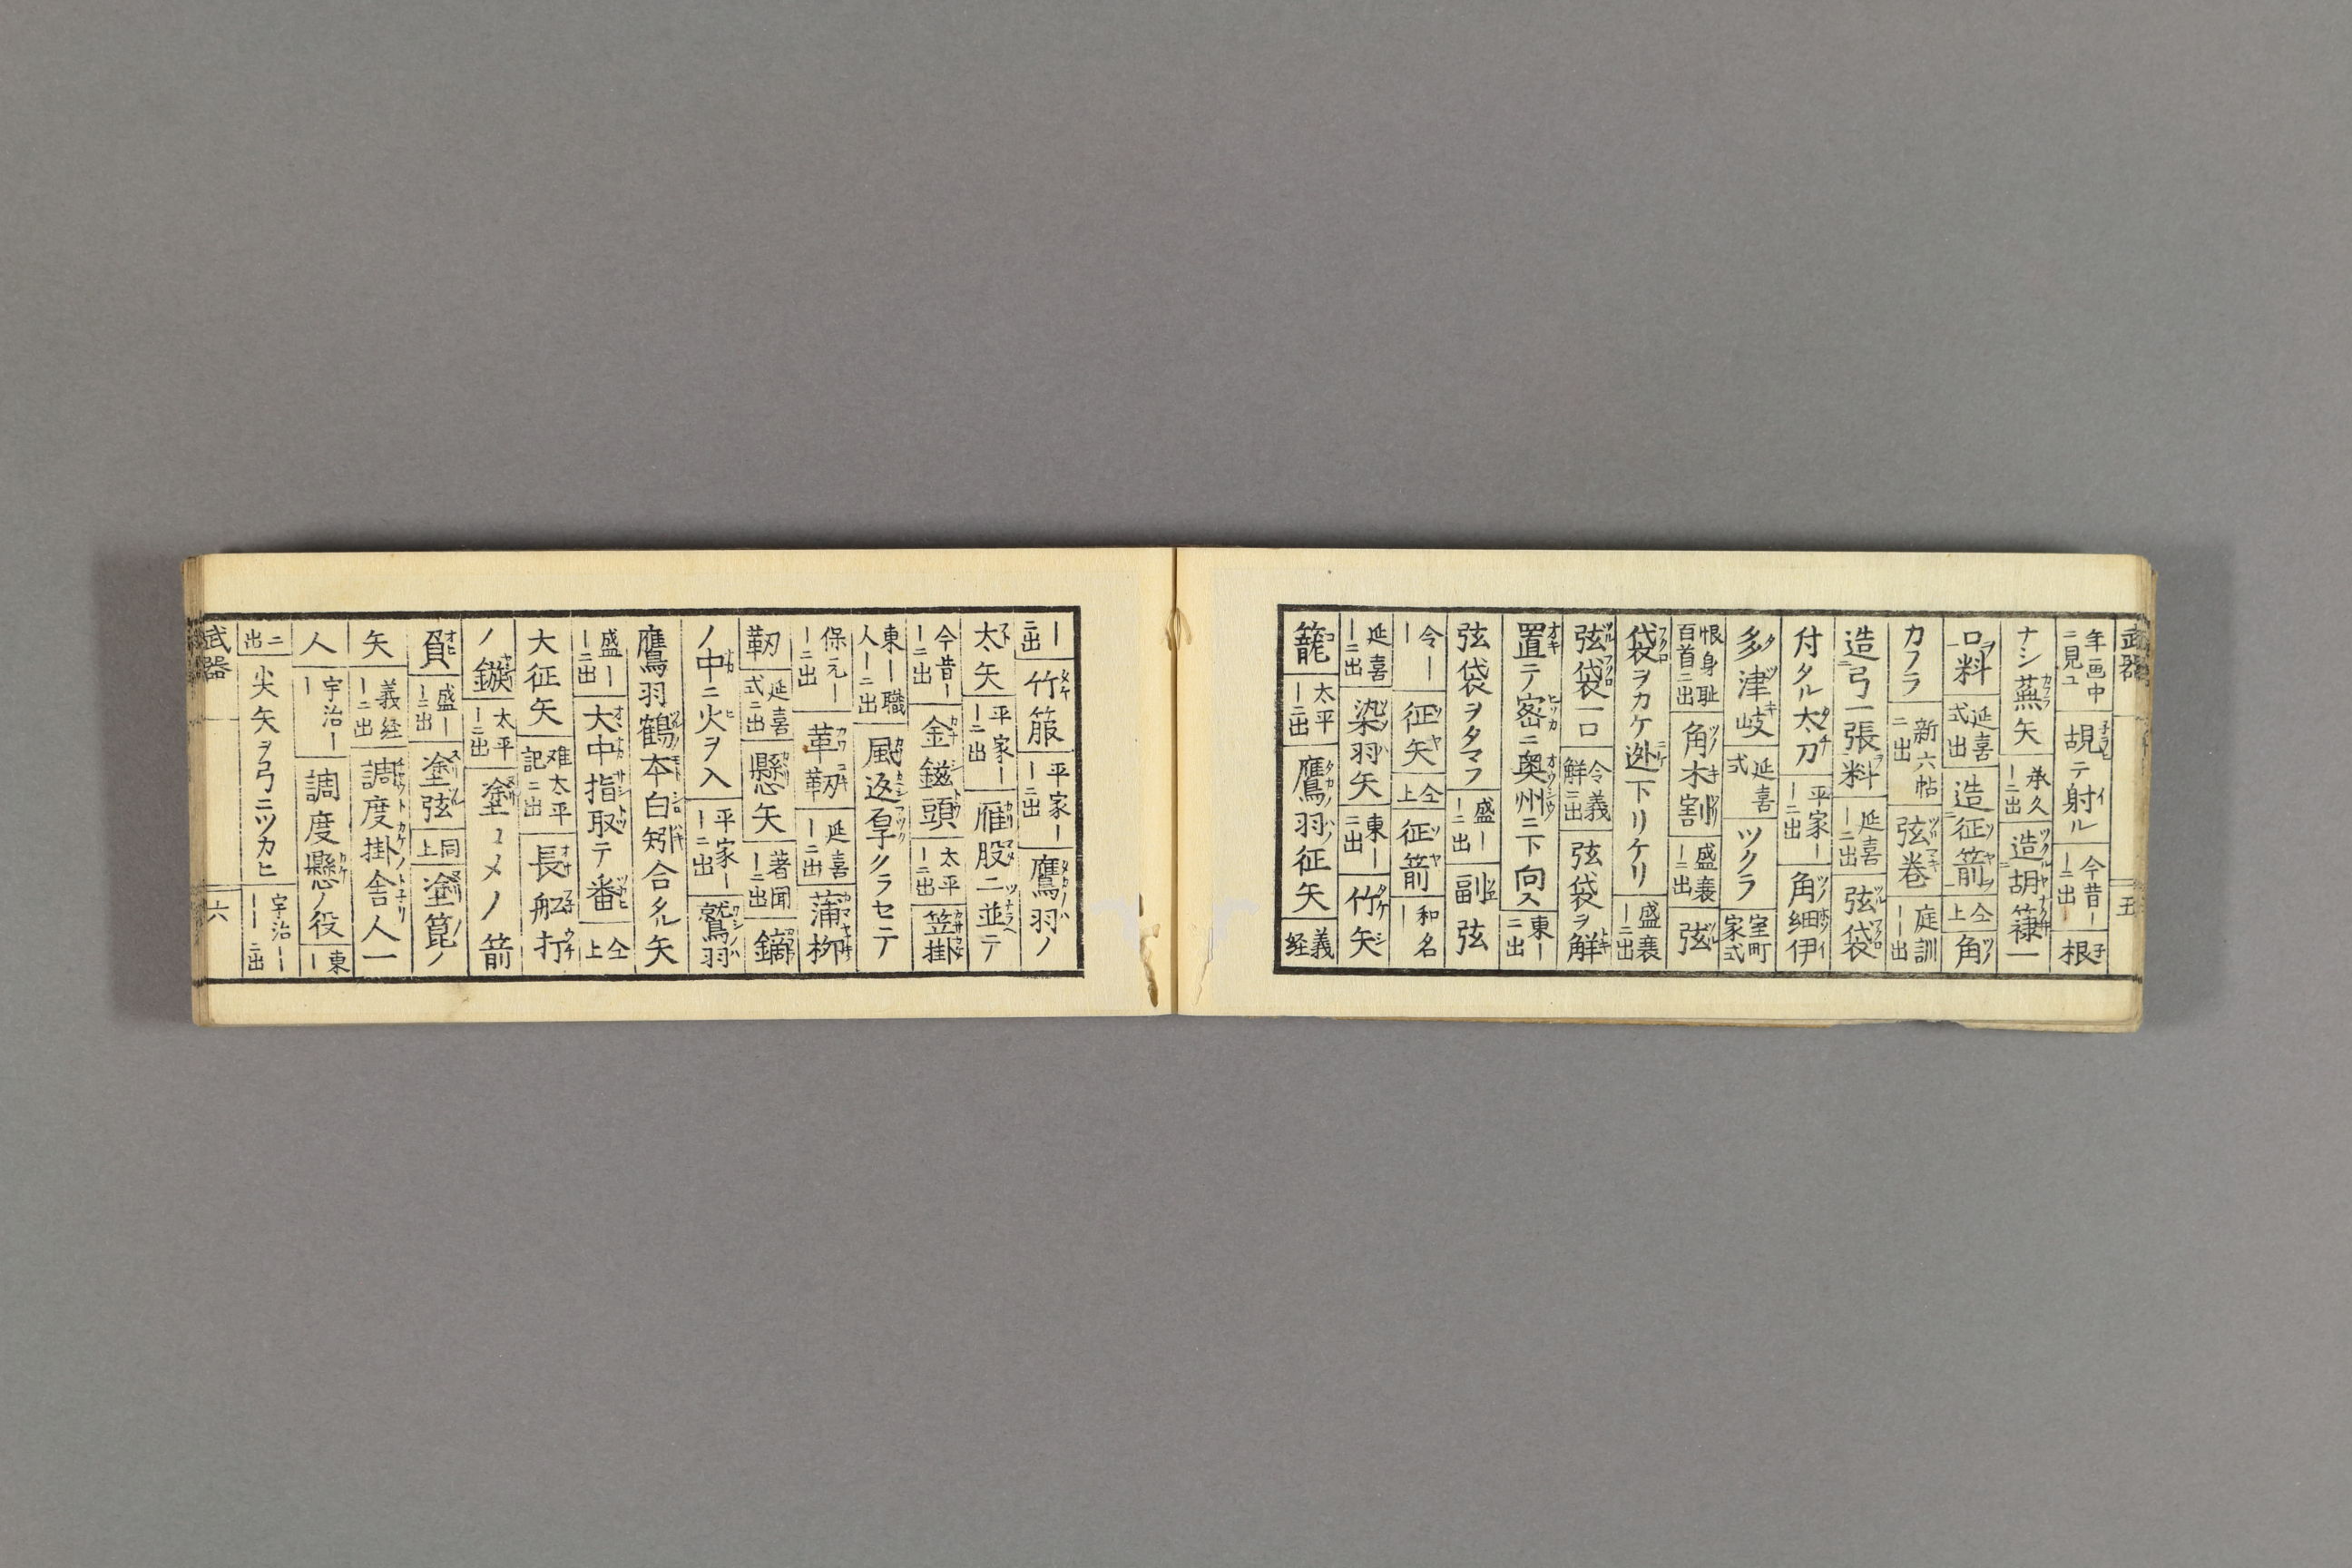 武器 五
年画中ニ見ユ 覘テ射ル 今昔ーーニ出 根
ナシ 蕪矢 承久ーニ出 造胡簶一
口料 延喜式出 造征箭 仝上 角
カフラ 新六帖ニ出 弦巻 庭訓ー出
造弓一張料 延喜ーニ出 弦袋
付タル太刀 平家ーーニ出 角細伊
多津岐 延喜式 ツクラ 室町家式
恨身耻百首ニ出 角木割 盛衰ーニ出 弦
袋ヲカケ迯下リケリ 盛衰ーニ出
弦袋一口 令義解ニ出 弦袋ヲ解
置テ密ニ奥州ニ下向ス 東ーニ出
弦袋ヲタマフ 盛ーーニ出 副弦
令ーー 征矢 仝上 征箭 和名ー
延喜ーニ出 染羽矢 東ーニ出 竹矢
籠 太平ーニ出 鷹羽征矢 義経
ーニ出 竹箙 平家ーーニ出 鷹羽ノ
太矢 平家ーーニ出 雁股ニ並テ
今昔ーーニ出 金鎡頭 太平ーニ出 笠掛
東ー職人ーニ出 風返皃クラセテ
保元ーーニ出 革靭 延喜ーニ出 蒲栁
靭 延喜式ニ出 懸矢 著聞ーニ出 鏑
ノ中ニ火ヲ入 平家ーーニ出 鷲羽
鷹羽鶴本白矧合タル矢
盛ーーニ出 大中指取テ番 仝上
大征矢 难太平記ニ出 長舩打
ノ鏃 太平ーニ出 塗コメノ箭
負 盛ーーニ出 塗弦 同上 塗箆ノ
矢 義経ーニ出 調度掛舎人一
人 宇治ーー 調度懸ノ役 東ー
ニ出 尖矢ヲ弓ニツカヒ 宇治ーーーニ出
武器 六